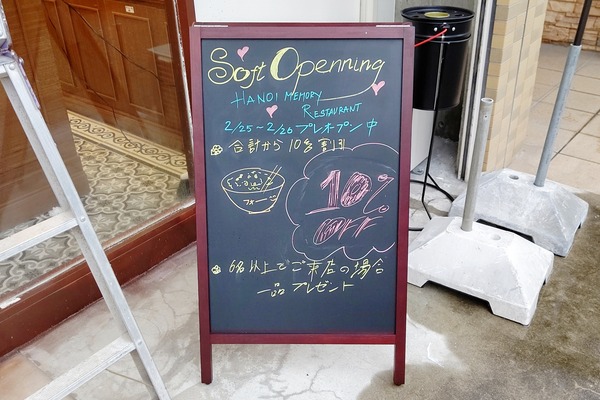 Soft Openning
HANOI MEMORY
RESTAURANT
2/25~2/26 プレオプン中
合計から10%割引
10%
OFF
6名以上でご来店の場合
一品プレゼント